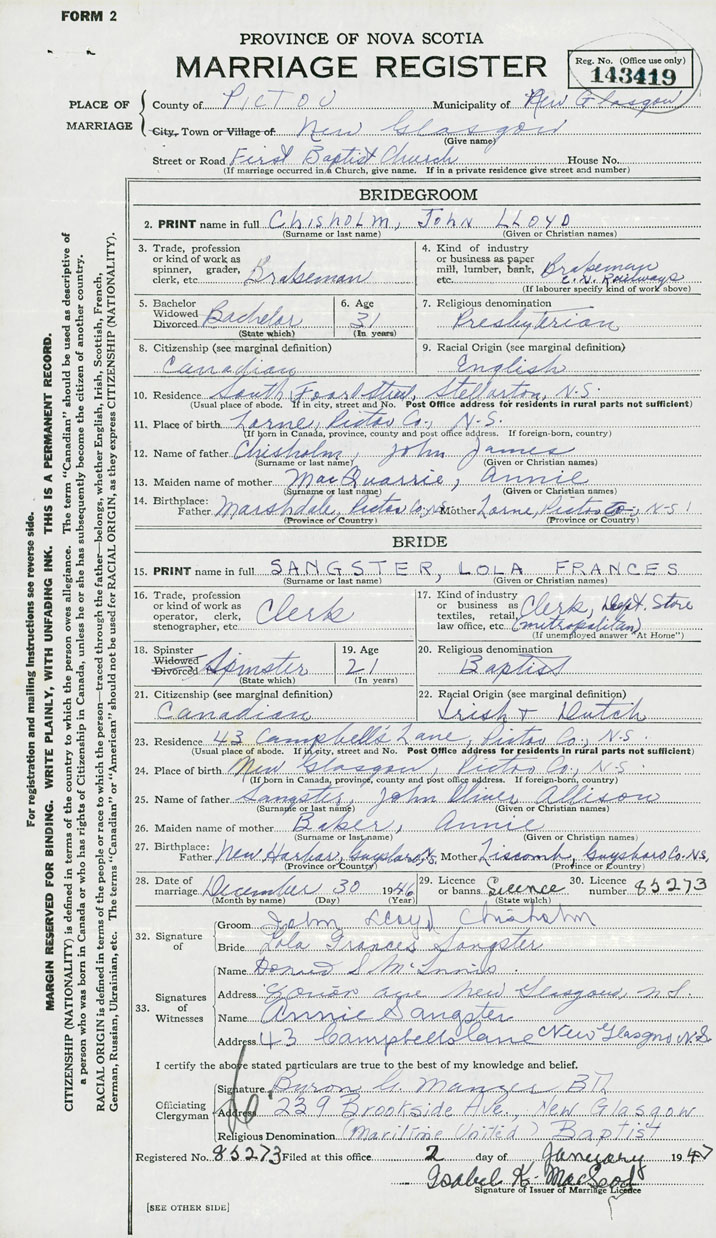 FORM 2
PROVINCE OF NOVA SCOTIA
MARRIAGE REGISTER
Reg. No. (Office use only)
143419
PLACE OF MARRIAGE
County of PICTOU Municipality of New Glasgow
City, Town or Village of New Glasgow
(Give name)
Street or Road First Baptist Church House No.
(If marriage occurred in a Church, give name. If in a private residence give street and number)
BRIDEGROOM
2. PRINT name in full CHISHOLM, JOHN LLOYD
(Surname or last name) (Given or Christian names)
3. Trade, profession or kind of work as spinner, grader, clerk, etc. Brakeman
4. Kind of industry or business as paper mill, lumber, bank, etc. Brakeman C.N. Railways
(If labourer specify kind of work above)
5. Bachelor Widowed Divorced Bachelor
(State which)
6. Age 31
(In years)
7. Religious denomination
Presbyterian
8. Citizenship (see marginal definition)
Canadian
9. Racial Origin (see marginal definition)
English
10. Residence South Foord Street, Stellarton, N.S.
(Usual place of abode. If in city, street and No. Post Office address for residents in rural parts not sufficient)
11. Place of birth Lorne, Pictou Co., N.S.
(If born in Canada, province, county and post office address. If foreign-born, country)
12. Name of father Chisholm, John James
(Surname or last name) (Given or Christian names)
13. Maiden name of mother MacQuarrie, Annie
(Surname or last name) (Given or Christian names)
14. Birthplace: Father Marshdale, Pictou Co., N.S. Mother Lorne, Pictou Co., N.S.
(Province or Country) (Province or Country)
BRIDE
15. PRINT name in full SANGSTER, LOLA FRANCES
(Surname or last name) (Given or Christian names)
16. Trade, profession or kind of work as operator, clerk, stenographer, etc. Clerk
17. Kind of industry or business as textiles, retail, law office, etc. Clerk, Dept. Store (metropolitan)
(If unemployed answer "At Home")
18. Spinster Widowed Divorced Spinster
(State which)
19. Age 21
(In years)
20. Religious denomination
Baptist
21. Citizenship (see marginal definition)
Canadian
22. Racial Origin (see marginal definition)
Irish & Dutch
23. Residence 43 Campbell's Lane, Pictou Co., N.S.
(Usual place of abode. If in city, street and No. Post Office address for residents in rural parts not sufficient)
24. Place of birth New Glasgow, Pictou Co., N.S
(If born in Canada, province, county and post office address. If foreign-born, country)
25. Name of father Sangster, John Oliver Allison
(Surname or last name) (Given or Christian names)
26. Maiden name of mother Baker, Annie
(Surname or last name) (Given or Christian names)
27. Birthplace: Father New Harbor, Guysboro, N.S. Mother Liscomb, Guysboro Co. N.S.
(Province or Country) (Province or Country)
28. Date of marriage December 30 1946
(Month by name) (Day) (Year)
29. Licence or banns Licence
(State which)
30. Licence number 85273
32. Signature of
Groom John Lloyd Chisholm
Bride Lola Frances Sangster
33. Signatures of Witnesses
Name Donald S McInnis
Address ave New Glasgow, N.S.
Name Annie Sangster
Address 43 Campbells Lane New Glasgow N.S.
I certify the above stated particulars are to the best of my knowledge and belief.
Officiating Clergyman
Signature Byron G. Manzer BTh
Address 239 Brookside Ave., New Glasgow
Religious Denomination (Maritime United) Baptist
Registered No. 85273 Filed at this office 2 day of January 1947
Isabel K. MacLeod
Signature of Issuer of Marriage Licence
[SEE OTHER SIDE]
For registration and mailing instructions see reverse side.
MARGIN RESERVED FOR BINDING. WRITE PLAINLY, WITH UNFADING INK. THIS IS A PERMANENT RECORD.
CITIZENSHIP (NATIONALITY) is defined in terms of the country to which the person owes allegiance. The term "Canadian" should be used as descriptive of
a person who was born in Canada or who has rights of Citizenship in Canada, unless he or she has subsequently become the citizen of another country.
RACIAL ORIGIN is defined in terms of the people or race to which the person—traced through the father—belongs, whether English, Irish, Scottish, French,
German, Russian, Ukrainian, etc. The terms "Canadian" or "American" should not be used for RACIAL ORIGIN, as they express CITIZENSHIP (NATIONALITY).